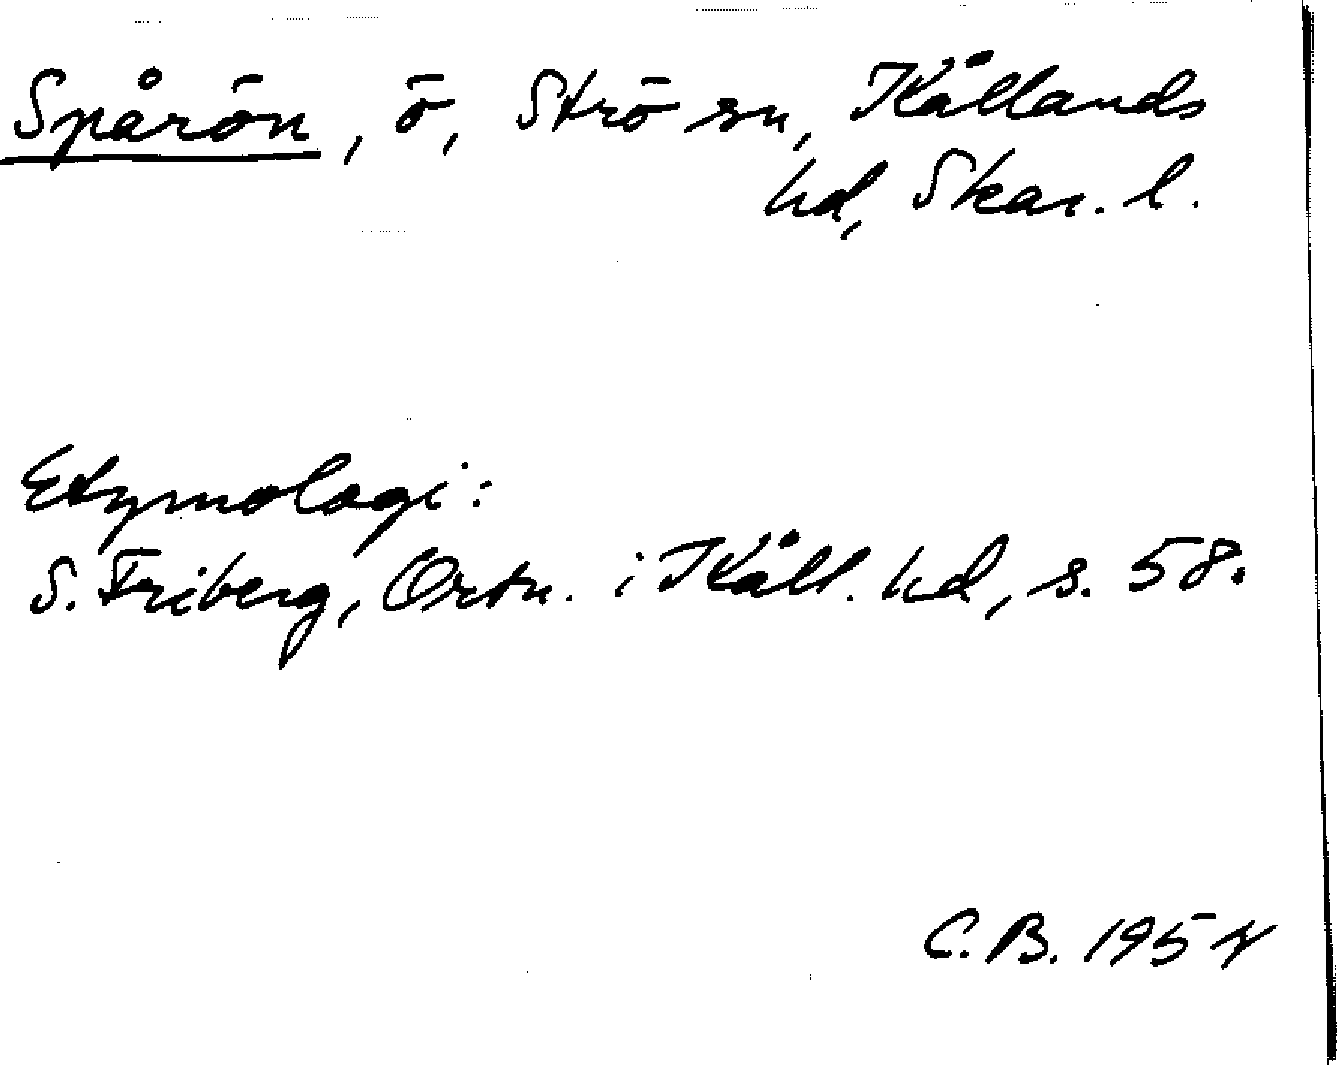 Spårön, ö, Strö sn, Kållands
hd, Skar. l.
Etymologi:
S. Friberg, Ortn. i Kåll. hd, s. 58.
C.B. 1954